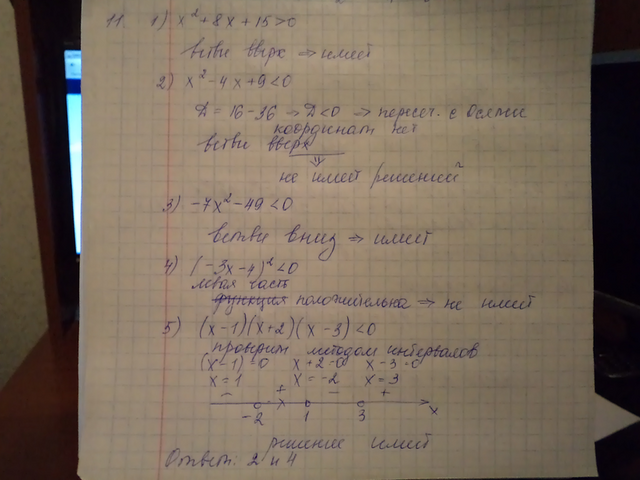 11. 1) x²+8x+15>0
ветви вверх ⇒ имеет
2) x²-4x+9<0
D=16-36 ⇒ D<0 ⇒ пересеч. с осями
координат нет
ветви вверх
⇓
не имеет решений
3) -7x²-49<0
ветви вниз ⇒ имеет
4) (-3x-4)²<0
левая часть
функция положительна ⇒ не имеет
5) (x-1)(x+2)(x-3)<0
проверим методом интервалов
(x-1)=0 x+2=0 x-3=0
x=1 x=-2 x=3
- + - +
-2 1 3 x
решение имеет
Ответ: 2 и 4